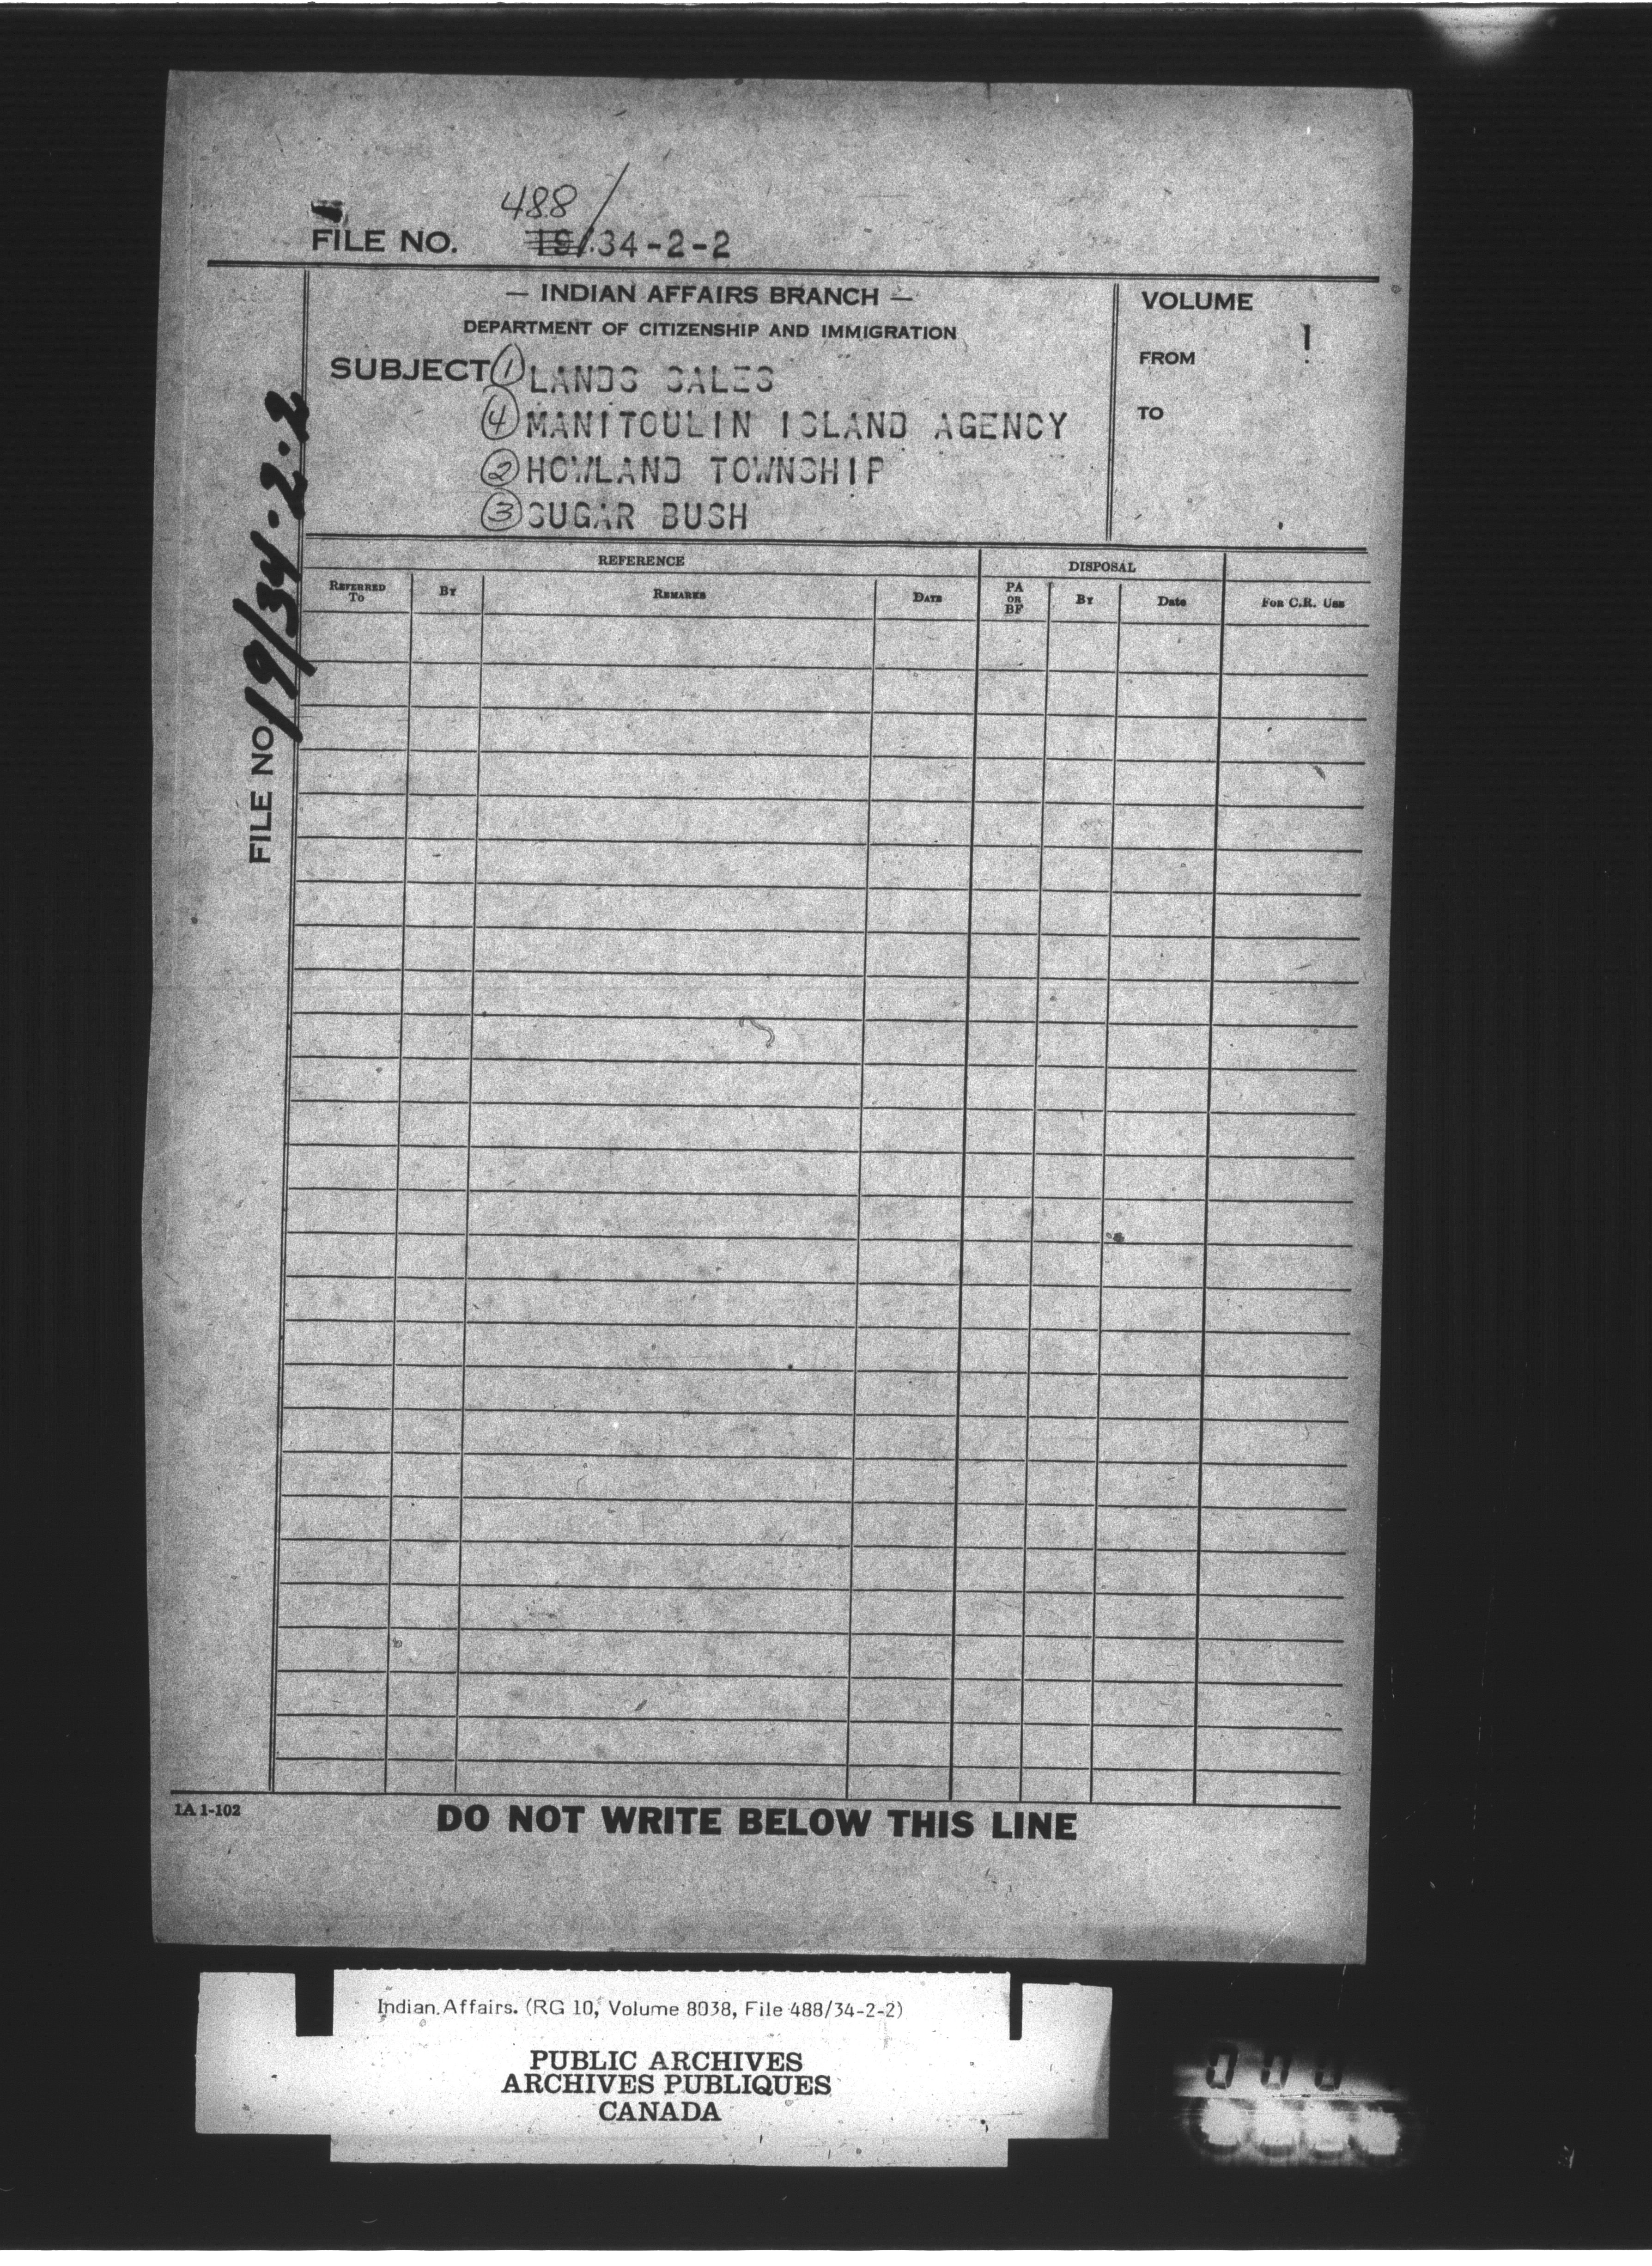 488/
FILE NO. 19/34-2-2
— INDIAN AFFAIRS BRANCH —
DEPARTMENT OF CITIZENSHIP AND IMMIGRATION
SUBJECT ① LANDS SALES
④ MANITOULIN ISLAND AGENCY
② HOWLAND TOWNSHIP
③ SUGAR BUSH
VOLUME 1
FROM
TO
FILE NO. 19/34-2-2
REFERENCE DISPOSAL
REFERRED TO BY REMARKS DATE PA OR BF BY Date FOR C.R. USE
1A 1-102
DO NOT WRITE BELOW THIS LINE
Indian Affairs. (RG 10, Volume 8038, File 488/34-2-2)
PUBLIC ARCHIVES
ARCHIVES PUBLIQUES
CANADA
000